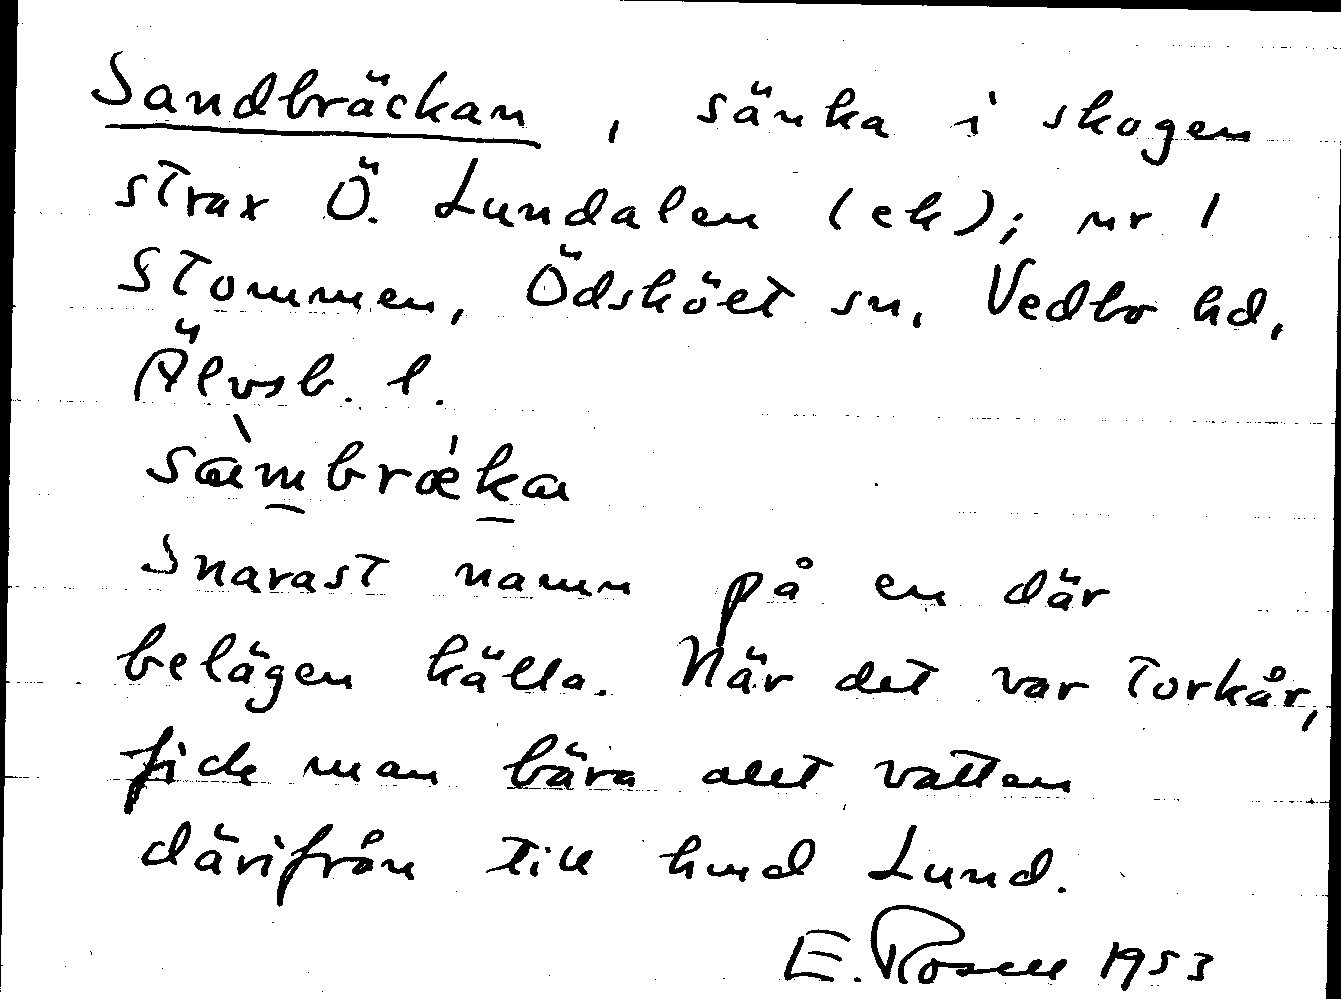 Sandbräckan, sänka i skogen
strax Ö. Lundalen (ek); nr 1
Stommen, Ödsköelt sn, Vedbo hd,
Älvsb. l.
sàmbrǽka
Snarast namn på en där
belägen källa. När det var torkår,
fick man bära allt vatten
därifrån till hmd Lund.
E. Rosell 1953